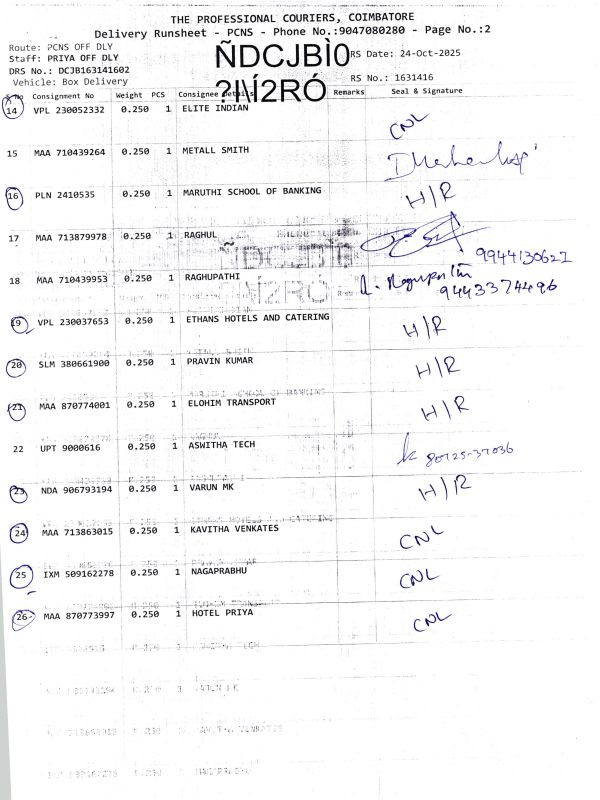 THE PROFESSIONAL COURIERS, COIMBATORE
Delivery Runsheet - PCNS - Phone No.:9047080280 - Page No.:2
Route: PCNS OFF DLY
Staff: PRIYA OFF DLY ÑDCJBÌ0 RS Date: 24-Oct-2025
DRS No.: DCJB163141602
Vehicle: Box Delivery ?I\Í2RÓ RS No.: 1631416
S.No Consignment No Weight PCS Consignee Details Remarks Seal & Signature
14 VPL 230052332 0.250 1 ELITE INDIAN CNL
15 MAA 710439264 0.250 1 METALL SMITH
16 PLN 2410535 0.250 1 MARUTHI SCHOOL OF BANKING H/R
17 MAA 713879978 0.250 1 RAGHUL 9944130621
18 MAA 710439953 0.250 1 RAGHUPATHI 9443374496
19 VPL 230037653 0.250 1 ETHANS HOTELS AND CATERING H/R
20 SLM 380661900 0.250 1 PRAVIN KUMAR H/R
21 MAA 870774001 0.250 1 ELOHIM TRANSPORT H/R
22 UPT 9000616 0.250 1 ASWITHA TECH 80725-37036
23 NDA 906793194 0.250 1 VARUN MK H/R
24 MAA 713863015 0.250 1 KAVITHA VENKATES CNL
25 IXM 509162278 0.250 1 NAGAPRABHU CNL
26 MAA 870773997 0.250 1 HOTEL PRIYA CNL